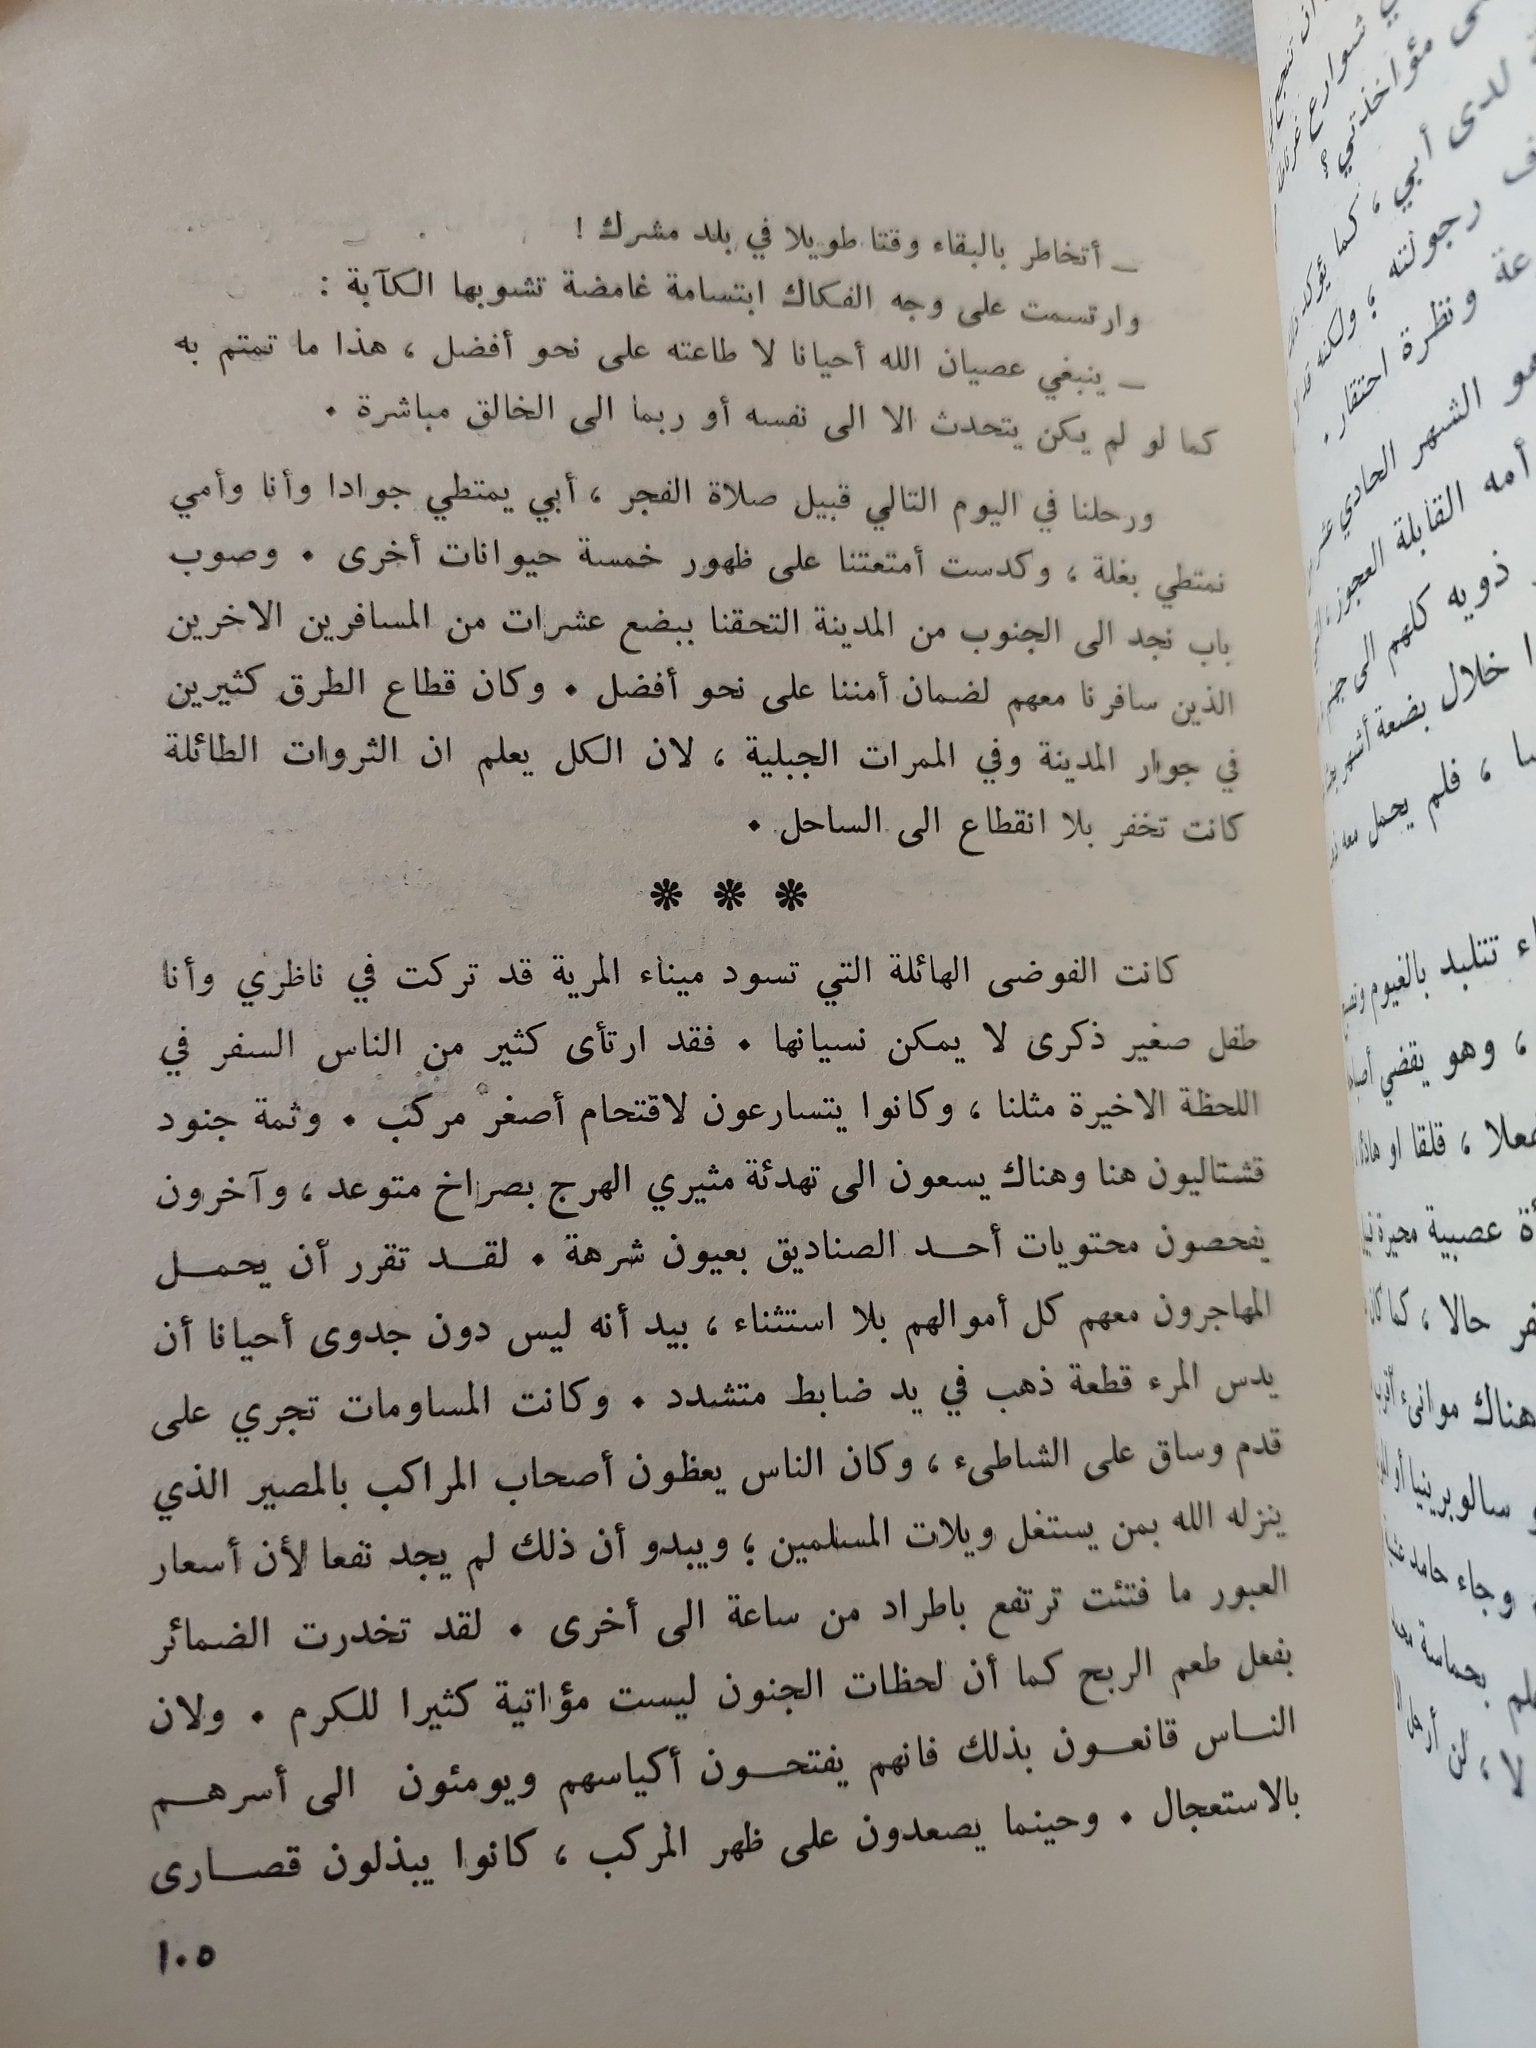 ـ أتخاطر بالبقاء وقتا طويلا في بلد مشرك !
وارتسمت على وجه الفكاك ابتسامة غامضة تشوبها الكآبة :
ـ ينبغي عصيان الله أحيانا لا طاعته على نحو أفضل ، هذا ما تمتم به
كما لو لم يكن يتحدث الا الى نفسه أو ربما الى الخالق مباشرة .
ورحلنا في اليوم التالي قبيل صلاة الفجر ، أبي يمتطي جوادا وأنا وأمي
نمتطي بغلة ، وكدست أمتعتنا على ظهور خمسة حيوانات أخرى . وصوب
باب نجد الى الجنوب من المدينة التحقنا ببضع عشرات من المسافرين الاخرين
الذين سافرنا معهم لضمان أمننا على نحو أفضل . وكان قطاع الطرق كثيرين
في جوار المدينة وفي الممرات الجبلية ، لان الكل يعلم ان الثروات الطائلة
كانت تخفر بلا انقطاع الى الساحل .
❋ ❋ ❋
كانت الفوضى الهائلة التي تسود ميناء المرية قد تركت في ناظري وأنا
طفل صغير ذكرى لا يمكن نسيانها . فقد ارتأى كثير من الناس السفر في
اللحظة الاخيرة مثلنا ، وكانوا يتسارعون لاقتحام أصغر مركب . وثمة جنود
قشتاليون هنا وهناك يسعون الى تهدئة مثيري الهرج بصراخ متوعد ، وآخرون
يفحصون محتويات أحد الصناديق بعيون شرهة . لقد تقرر أن يحمل
المهاجرون معهم كل أموالهم بلا استثناء ، بيد أنه ليس دون جدوى أحيانا أن
يدس المرء قطعة ذهب في يد ضابط متشدد . وكانت المساومات تجري على
قدم وساق على الشاطىء ، وكان الناس يعظون أصحاب المراكب بالمصير الذي
ينزله الله بمن يستغل ويلات المسلمين ؛ ويبدو أن ذلك لم يجد تفعا لأن أسعار
العبور ما فتئت ترتفع باطراد من ساعة الى أخرى . لقد تخدرت الضمائر
بفعل طعم الربح كما أن لحظات الجنون ليست مؤاتية كثيرا للكرم . ولان
الناس قانعون بذلك فانهم يفتحون أكياسهم ويومئون الى أسرهم
بالاستعجال . وحينما يصعدون على ظهر المركب ، كانوا يبذلون قصارى
١٠٥
شوارع
مؤاخذتي ؟
لدى أبي ، كما يؤكد
رجولته ؛ ولكنه
ونظرة احتقار .
الشهر الحادي عشر
أمه القابلة العجوز
ذويه كلهم الى
خلال بضعة أشهر
، فلم يحمل معه
تتلبد بالغيوم
، وهو يقضي
، قلقا او هادئا
عصبية
حالا ، كما
هناك موانىء
سالوبرينيا أو
وجاء حامد
بحماسة
لا ، لن أرحل